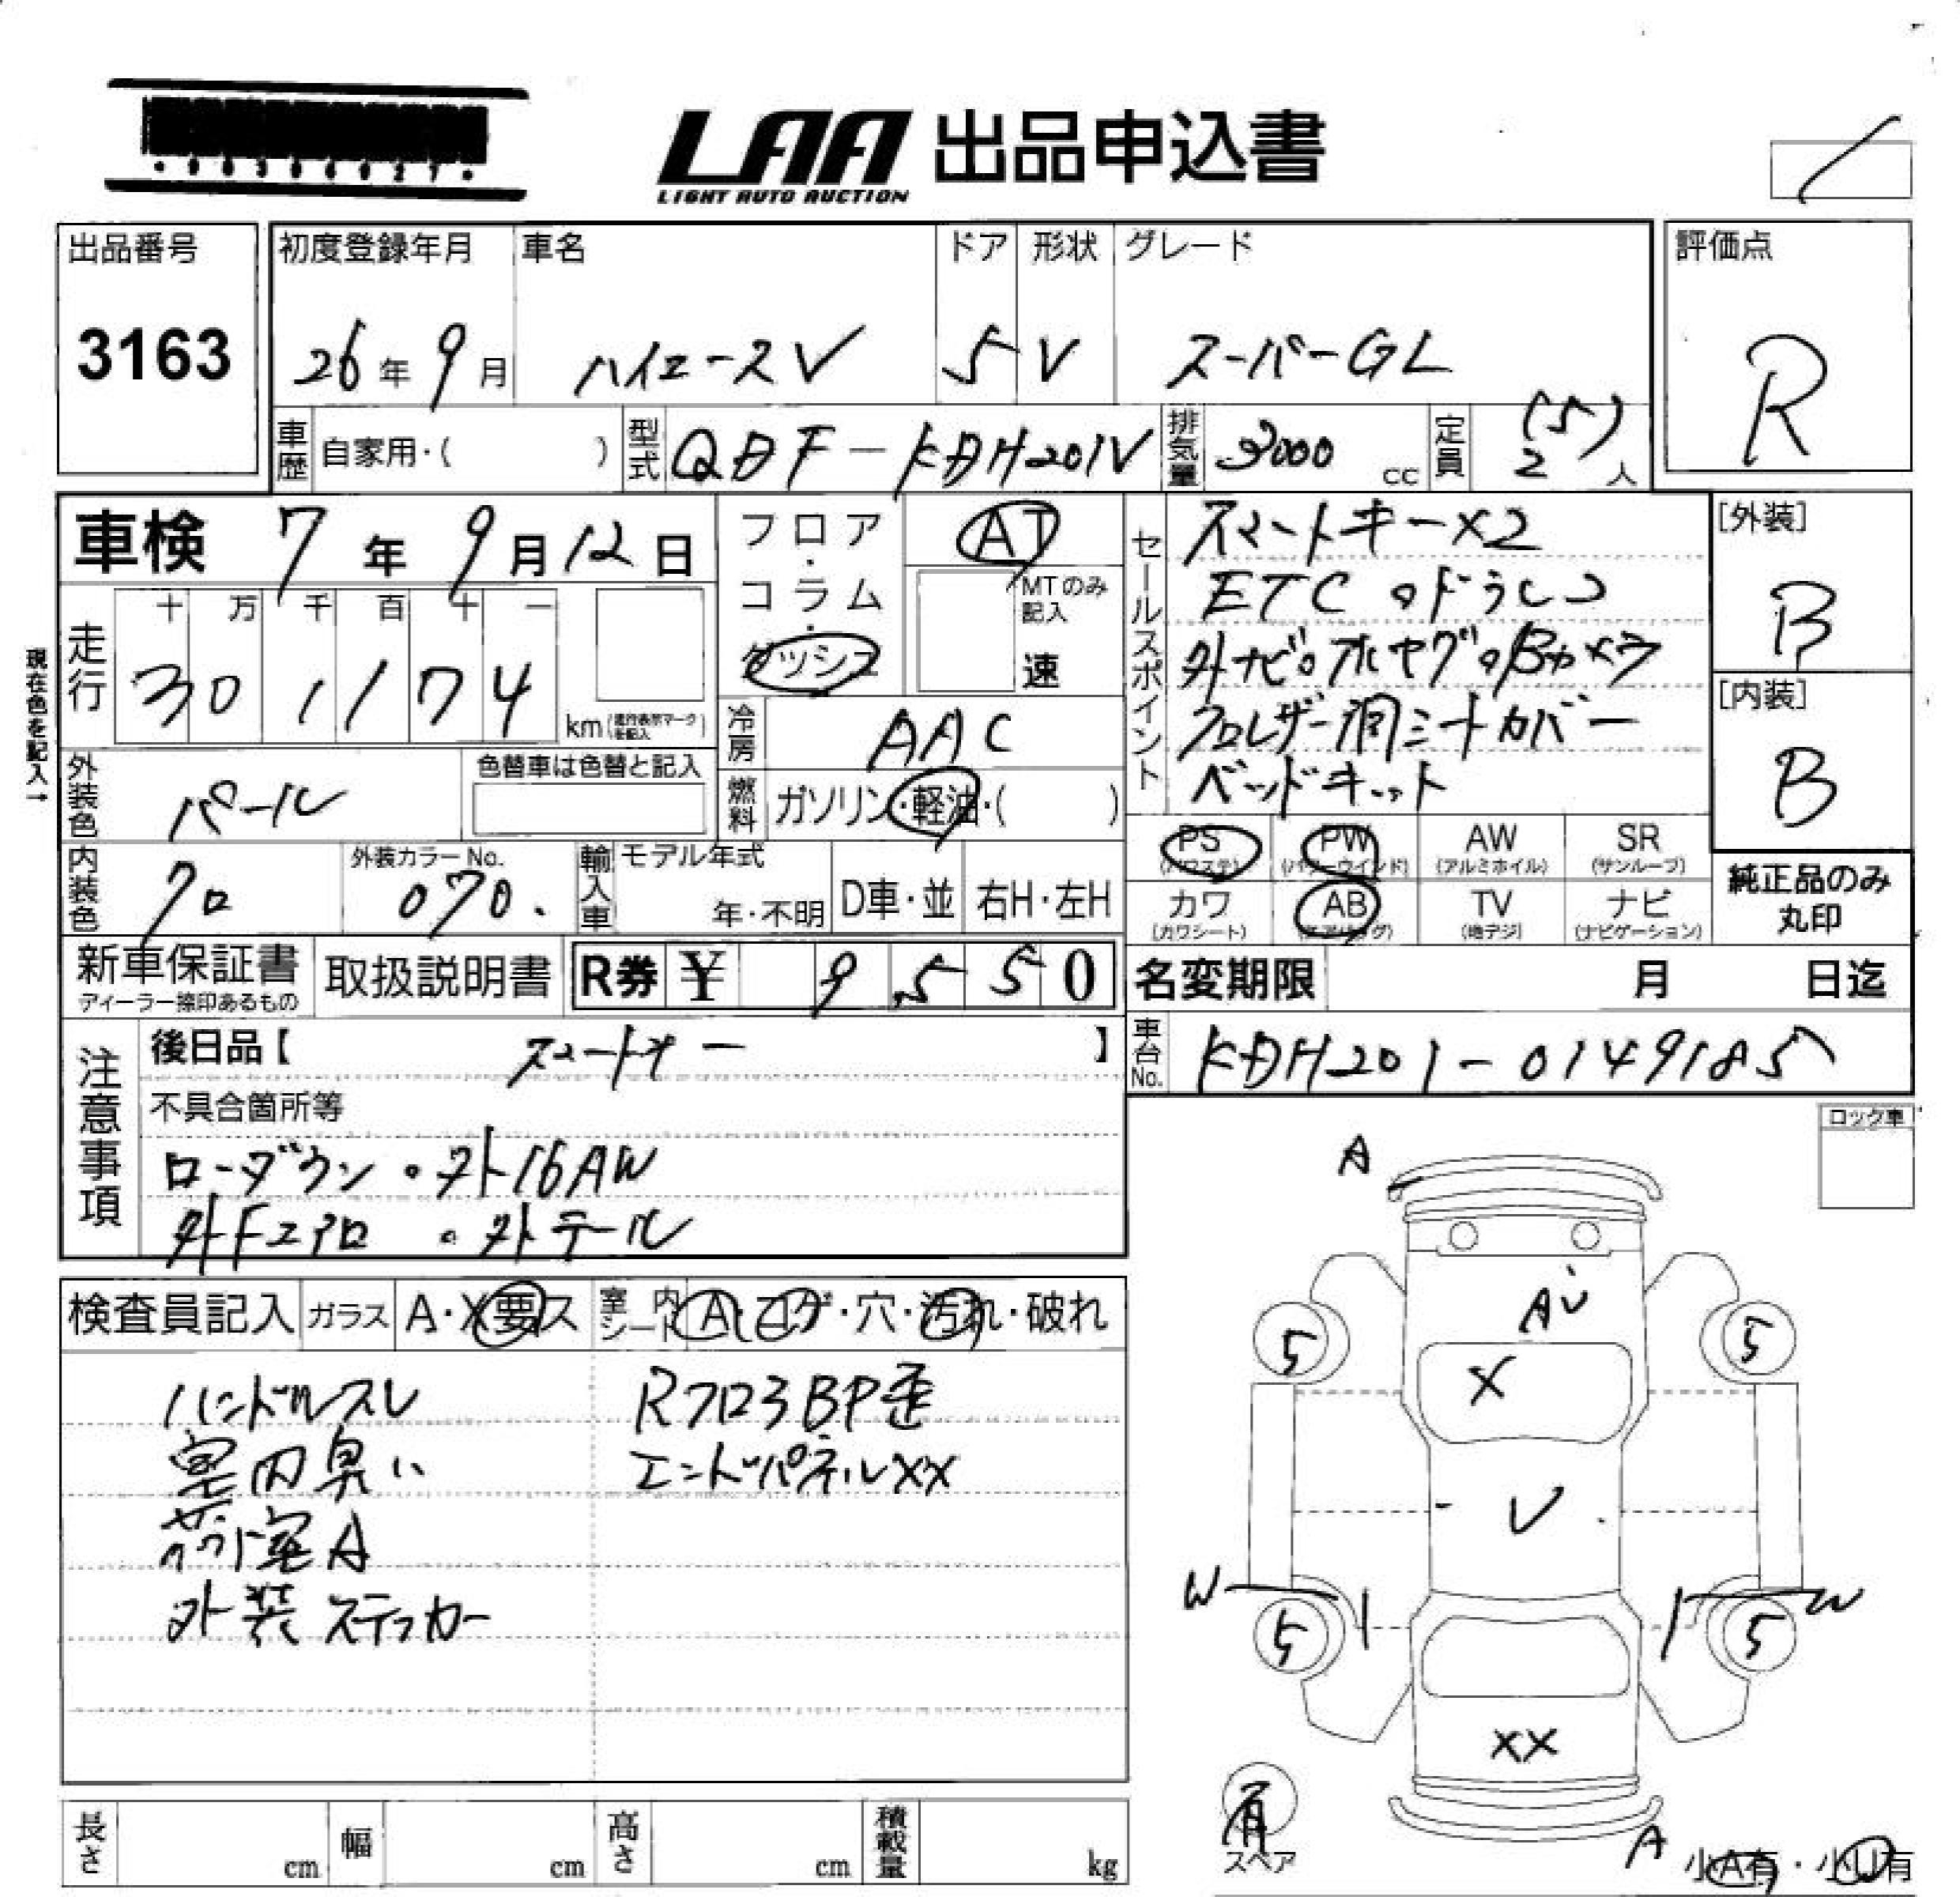 LAA 出品申込書
LIGHT AUTO AUCTION
出品番号
3163
初度登録年月
26年9月
車名
ハイエースV
ドア
5
形状
V
グレード
スーパーGL
評価点
R
車歴
自家用・( )
型式
QDF-KDH201V
排気量
3000 cc
定員
(5)
2人
車検 7年9月12日
走行
十 万 千 百 十 一
301174
km(走行表示マークを記入)
現在色を記入→
フロア・コラム・ダッシュ
AT
MTのみ記入
速
冷房
AAC
燃料
ガソリン・軽油・( )
外装色
パール
色替車は色替と記入
内装色
クロ
外装カラーNo.
070.
輸入車
モデル年式
年・不明
D車・並
右H・左H
セールスポイント
スマートキー×2
ETC。ドラレコ
外ナビ。ホヤグ。Bカメラ
クロレザー調シートカバー
ベッドキット
[外装]
B
[内装]
B
PS
(パワステ)
PW
(パワーウインド)
AW
(アルミホイル)
SR
(サンルーフ)
カワ
(カワシート)
AB
(エアバッグ)
TV
(地デジ)
ナビ
(ナビゲーション)
純正品のみ
丸印
新車保証書
ディーラー捺印あるもの
取扱説明書
R券 ¥ 9550
名変期限 月 日迄
注意事項
後日品【 スマートキー 】
不具合箇所等
ローダウン。外16AW
外Fエアロ 。外テール
車台No.
KDH201-0149185
ロック車
検査員記入
ガラス
A・X要ス
室内シート
A・コゲ・穴・汚れ・破れ
ハンドルスレ
室内臭い
荷室A
外装ステッカー
Rフロ3BP歪
エンドパネルXX
A
AU
5
5
X
U
W
W
5
5
XX
有
スペア
A
小A有・小U有
長さ cm
幅 cm
高さ cm
積載量 kg